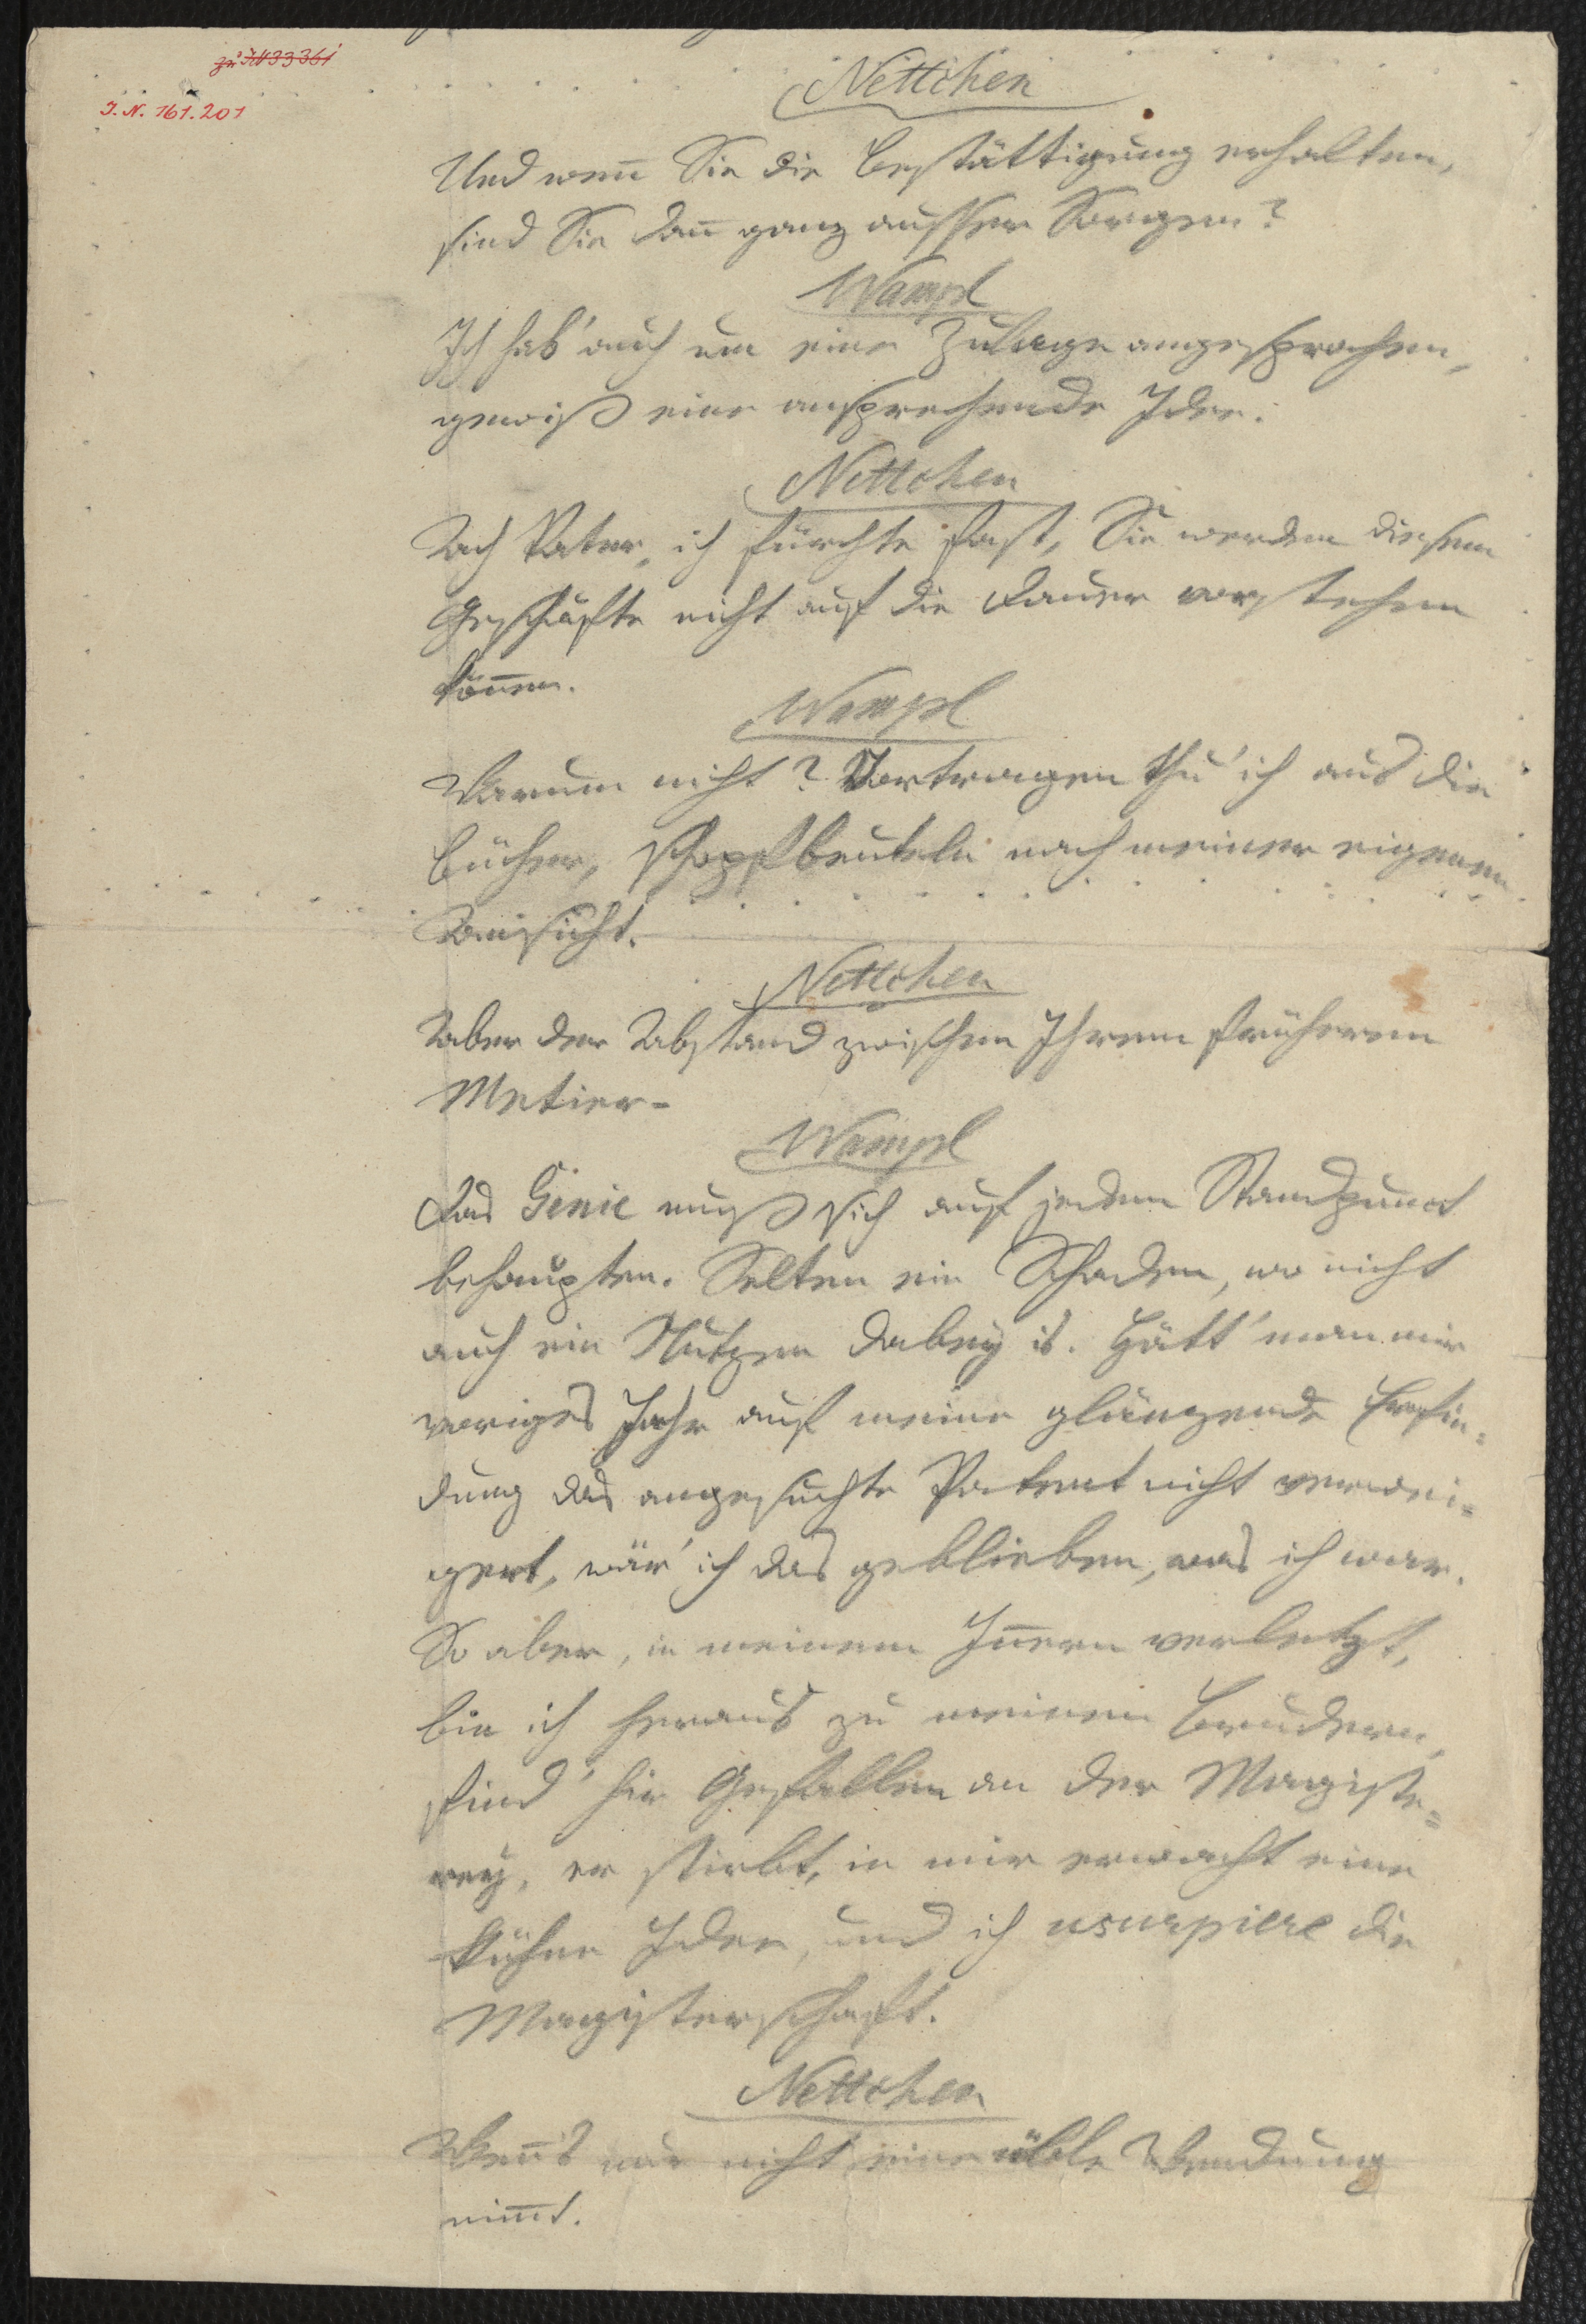 zu IN 33361
I. N. 161.201
Nettchen
Und weñ Sie die Bestättigung erhalten,
sind Sie dañ ganz ausser Sorgen?
Wampl
Ich hab' auch um eine Zulage angesprochen,
gewiß eine ansprechende Idee.
Nettchen
Ach Vater, ich fürchte fast, Sie werden diesem
Geschäfte nicht auf die Dauer vorstehen
köñen.
Wampl
Warum nicht? Vortragen thu' ich aus die
Bücher, schopfbeuteln nach meiner eigenen
Ansicht.
Nettchen
Aber der Abstand zwischen Ihrem früheren
Metier-
Wampl
Das Genie muß sich auf jedem Standpunct
behaupten. Selten ein Schaden, wo nicht
auch ein Nutzen dabey is. Hätt' man mir
voriges Jahr auf meine glänzende Erfin=
dung das angesuchte Patent nicht verwei=
gert, wär' ich das geblieben, was ich war.
So aber, in meinem Iñern verletzt,
bin ich heraus zu meinem Brudern,
find' hier Gefallen an der Magiste=
rey, er stirbt, in mir erwacht eine
kühne Idee, und ich usurpiere die
Magisterschaft.
Nettchen
Weñ's nur nicht eine üble Wendung
nim̄t.